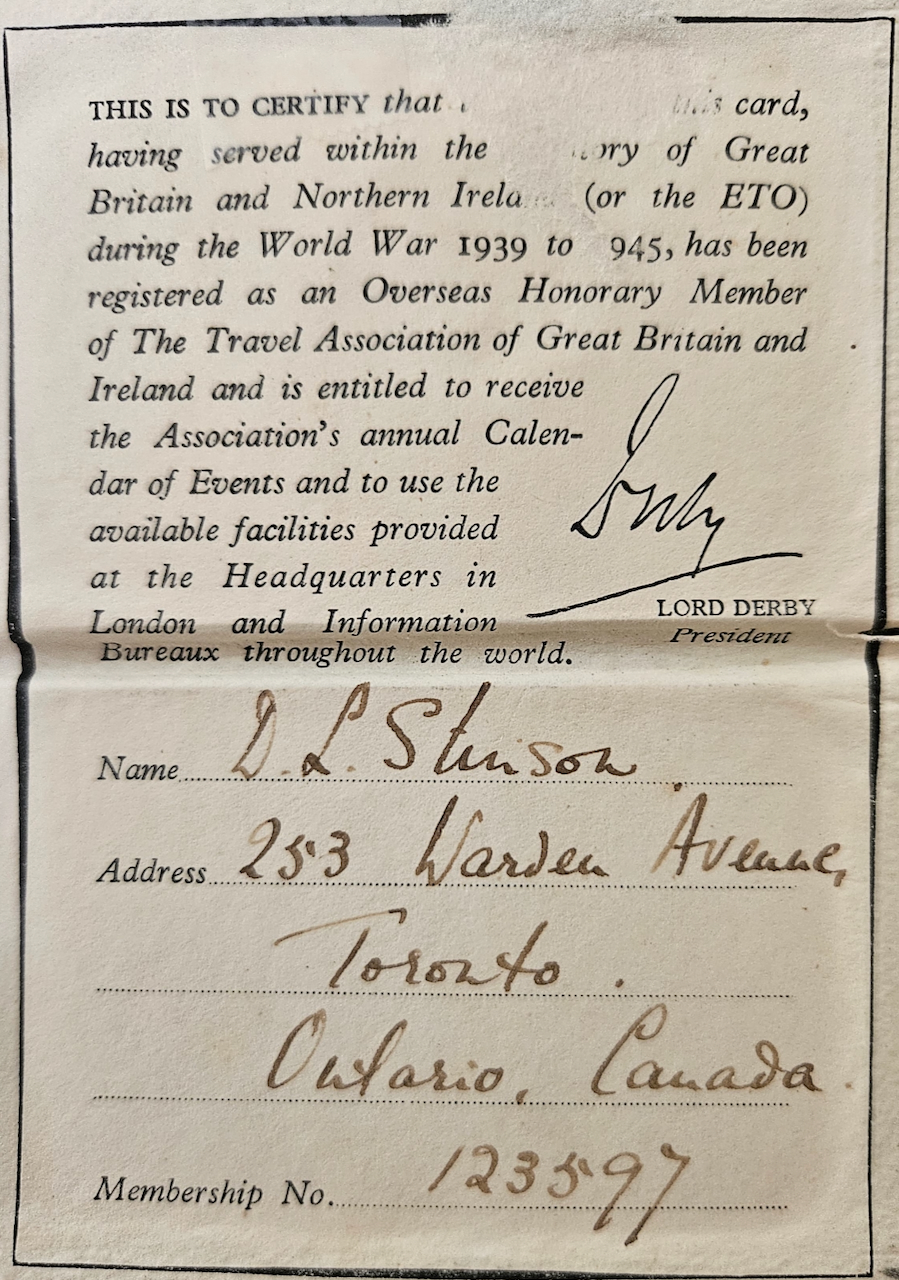 THIS IS TO CERTIFY that this card,
having served within the ory of Great
Britain and Northern Irela (or the ETO)
during the World War 1939 to 945, has been
registered as an Overseas Honorary Member
of The Travel Association of Great Britain and
Ireland and is entitled to receive
the Association's annual Calen-
dar of Events and to use the
available facilities provided
at the Headquarters in
London and Information
Bureaux throughout the world.
Derby
LORD DERBY
President
Name D. L. Stinson
Address 253 Warden Avenue,
Toronto.
Ontario, Canada.
Membership No. 123597